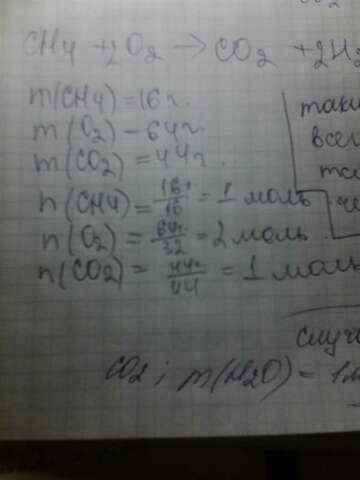 CO2
CH4 + 2O2 → CO2 + 2H2
m(CH4) = 16г.
m(O2) - 64г.
m(CO2) = 44г.
n(CH4) = 16г/16 = 1 моль
n(O2) = 64г/32 = 2 моль
n(CO2) = 44г/44 = 1 моль
таки
всег
че
случа
CO2 ; m(H2O) = 1м